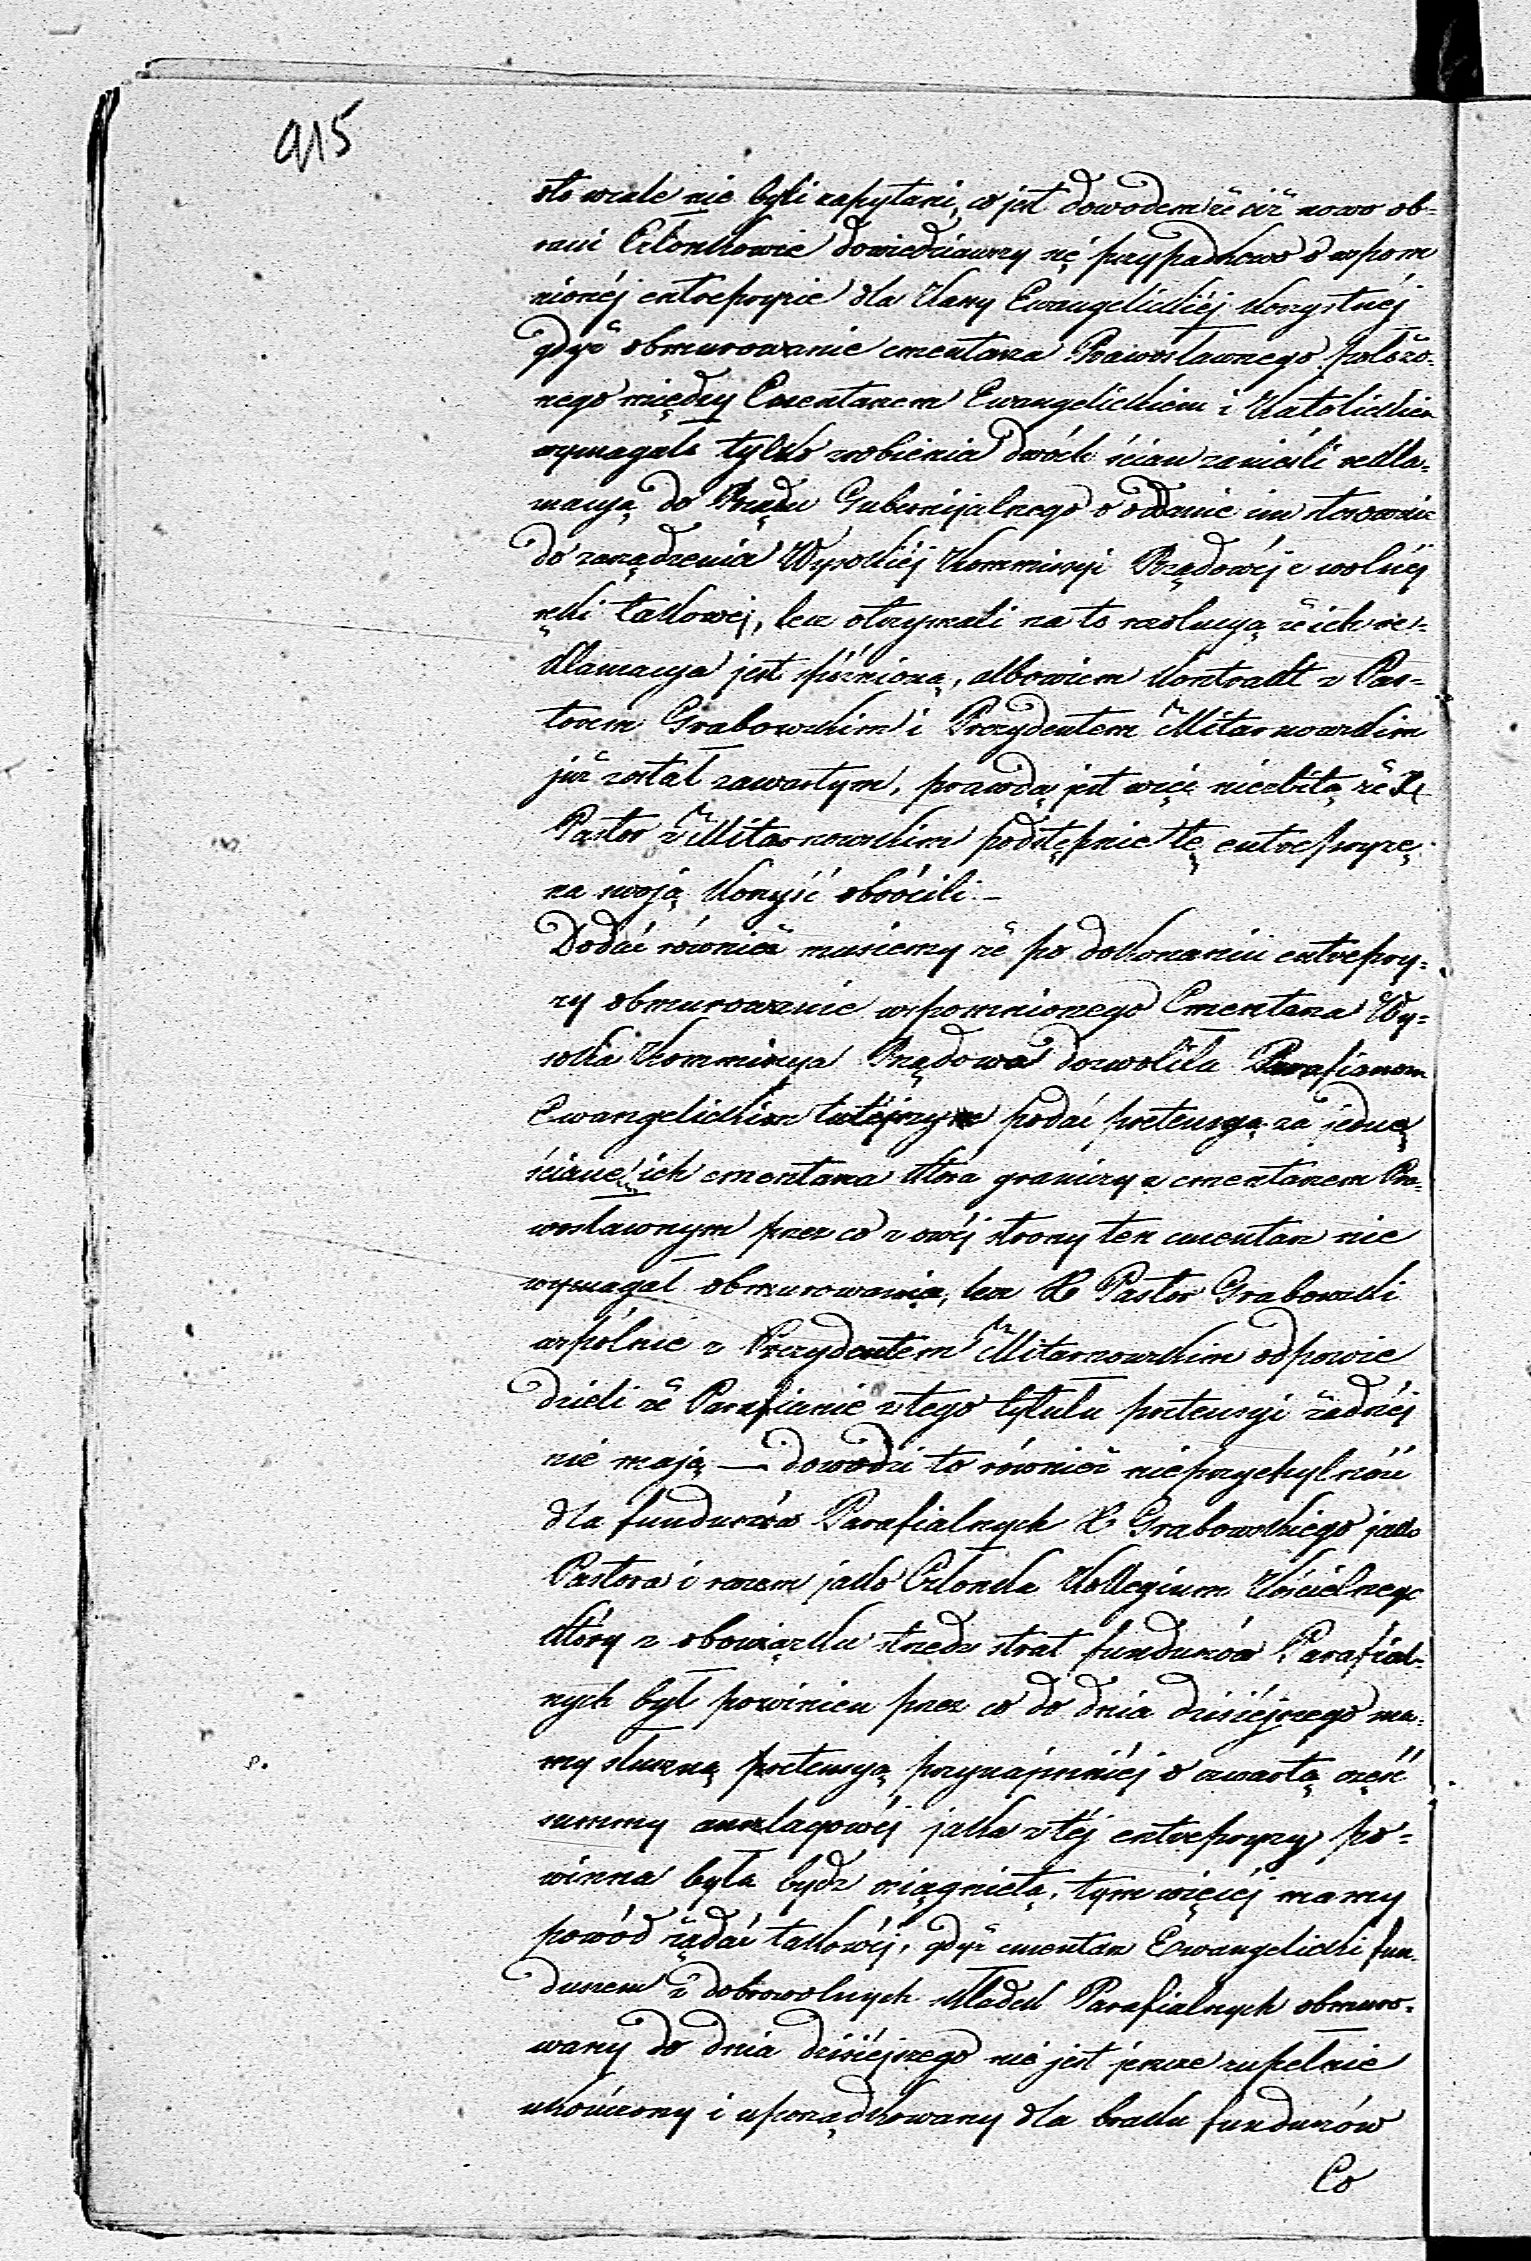 915
sto wcale nie byli zapytani, co jest dowodem że ciż nowo ob-
rani Członkowie dowiedziawszy się przypadkowo o wspom
nionéj entrepryzie dla Kassy Ewangelickiéj korzystnéj
gdyż obmurowanie cmentarza Prawosławnego położo-
nego między Cmentarzem Ewangelickiem i Katolickiem
wymagało tylko zrobienia dwóch ścian zanieśli rekla-
macyą do Rządu Gubernijalnego o oddanie im stosownie
do zarządzenia Wysokiéj Kommissyi Rządowéj z wolnéj
ręki takowéj, lecz otrzymali na to rezolucyą że ich re-
klamacya jest spóźnioną, albowiem kontrakt z Pas-
torem Grabowskim i Prezydentem Mitarnowskim
już został zawartym, prawdą jest więc niezbitą że X
Pastor z Mitarnowskim podstępnie tę entrepryzę
na swoją korzyść obrócili. –
Dodać również musiemy że po dokonaniu entrepry-
zy obmurowanie wspomnionego Cmentarza Wy-
soka Kommissya Rządowa dozwoliła Parafianom
Ewangelickim tutéjszym podać pretensyą za jedną
ścianę ich cmentarza która graniczy z cmentarzem Pra-
wosławnym przez co z owéj strony ten cmentarz nie
wymagał obmurowania, lecz X Pastor Grabowski
wspólnie z Prezydentem Mitarnowskim odpowie
dzieli że Parafianie z tego tytułu pretensyi żadnéj
nie mają — dowodzi to również nieprzychylność
dla funduszów Parafialnych X Grabowskiego jako
Pastora i razem jako Członka Kollegium Kościelnego
który z obowiązku strzedz strat funduszów Parafial-
nych był powinien przez co do dnia dzisiéjszego ma-
my słuszną pretensyą przynajmniéj o czwartą część
summy anszlagowéj jaka z téj entrepryzy po-
winna była bydź osiągnietą, tym więcéj mamy
powód żądać takowéj, gdyż cmentarz Ewangelicki fun-
duszem z dobrowolnych składek Parafialnych obmuro-
wany do dnia dzisiéjszego nie jest jeszcze zupełnie
ukończony i uporządkowany dla braku funduszów
Co